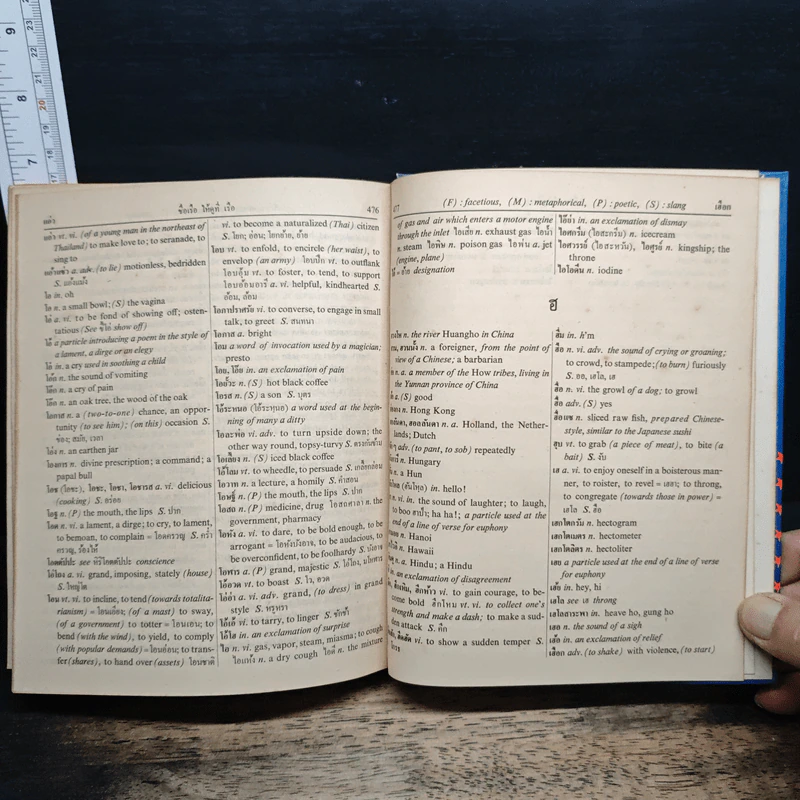 แอ่ว
ชื่อเรือ ให้ดูที่ เรือ
476
แอ่ว vt. vi. (of a young man in the northeast of
Thailand) to make love to; to seranade, to
sing to
a. adv. (to lie) motionless, bedridden
โอ in. oh
โอ n. a small bowl; (S) the vagina
โอ่ a. vi. to be fond of showing off; osten-
tatious (See ขี้โอ่ show off)
a particle introducing a poem in the style of
a lament, a dirge or an elegy
in. a cry used in soothing a child
n. the sound of vomiting
n. a cry of pain
โอ๊ก n. an oak tree, the wood of the oak
โอกาส n. a (two-to-one) chance, an oppor-
tunity (to see him); (on this) occasion S.
ช่อง, สมัย, เวลา
โอ่ง n. an earthen jar
โองการ n. divine prescription; a command; a
papal bull
a. vi. delicious
(cooking) S. อร่อย
โอฐ n. (P) the mouth, the lips S. ปาก
โอด n. a lament, a dirge; to cry, to lament,
to bemoan, to complain = โอดครวญ S. คร่ำ
ครวญ, ร้องไห้
โอตตัปปะ see หิริโอตตัปปะ conscience
โอ่โถง a. vi. grand, imposing, stately (house)
S. ใหญ่โต
โอน vt. vi. to incline, to tend (towards totalita-
rianism) = โอนเอียง; (of a mast) to sway,
(of a government) to totter = โอนเอน; to
bend (with the wind), to yield, to comply
(with popular demands) = โอนอ่อน; to trans-
fer (shares), to hand over (assets) โอนชาติ
vi. to become a naturalized (Thai) citizen
S. โยก; อ่อน; โยกย้าย, ย้าย
โอบ vt. to enfold, to encircle (her waist), to
envelop (an army) โอบปีก vt. to outflank
โอบอุ้ม vt. to foster, to tend, to support
โอบอ้อมอารี a. vi. helpful, kindhearted S.
อ้อม, ล้อม
โอภาปราศรัย vt. to converse, to engage in small
talk, to greet S. สนทนา
โอภาส a. bright
โอม a word of invocation used by a magician;
presto
โอย, โอ๊ย in. an exclamation of pain
โอยั๊วะ n. (S) hot black coffee
โอรส n. (S) a son S. บุตร
a word used at the begin-
ning of many a ditty
โอละพ่อ vi. adv. to turn upside down; the
other way round, topsy-turvy S. ตรงกันข้าม
โอเลี้ยง n. (S) iced black coffee
โอ้โลม vt. to wheedle, to persuade S. เกลี้ยกล่อม
โอวาท n. a lecture, a homily S. คำสอน
โอษฐ์ n. (P) the mouth, the lips S. ปาก
โอสถ n. (P) medicine, drug โอสถศาลา n. the
government, pharmacy
โอหัง a. vi. to dare, to be bold enough, to be
arrogant = โอหังบังอาจ, to be audacious, to
be overconfident, to be foolhardy S. บังอาจ
โอฬาร a. (P) grand, majestic S. โอ่โถง, มโหฬาร
โอ้อวด vt. to boast S. โว, อวด
โอ่อ่า a. vi. adv. grand, (to dress) in grand
style S. หรูหรา
โอ้เอ้ vi. to tarry, to linger S. ชักช้า
โอ้โฮ in. an exclamation of surprise
ไอ n. vi. gas, vapor, steam, miasma; to cough
ไอแห้ง n. a dry cough ไอดี n. the mixture
477
(F) : facetious, (M) : metaphorical, (P) : poetic, (S) : slang
เฮือก
of gas and air which enters a motor engine
through the inlet ไอเสีย n. exhaust gas ไอน้ำ
n. steam ไอพิษ n. poison gas ไอพ่น a. jet
(engine, plane)
designation
ไอ้ย่า in. an exclamation of dismay
ไอศกรีม (ไอสะกรีม) n. icecream
ไอศวรรย์ (ไอสะหวัน), ไอศูรย์ n. kingship; the
throne
ไอโอดีน n. iodine
ฮ
n. the river Huangho in China
n. a foreigner, from the point of
view of a Chinese; a barbarian
n. a. a member of the How tribes, living in
the Yunnan province of China
a. (S) good
n. Hong Kong
n. a. Holland, the Nether-
lands; Dutch
adv. (to pant, to sob) repeatedly
n. Hungary
n. a Hun
in. hello!
n. vi. in. the sound of laughter; to laugh,
to boo ฮาป่า; ha ha!; a particle used at the
end of a line of verse for euphony
n. Hanoi
n. Hawaii
n. a. Hindu; a Hindu
in. an exclamation of disagreement
vi. to gain courage, to be-
come bold ฮึกโหม vt. vi. to collect one's
strength and make a dash; to make a sud-
den attack S. คึก
vi. to show a sudden temper S.
ฮึ่ม in. h'm
ฮือ n. vi. adv. the sound of crying or groaning;
to crowd, to stampede; (to burn) furiously
S. ฮอ, เฮโล, เฮ
n. vi. the growl of a dog; to growl
adv. (S) yes
ฮื่อแซ n. sliced raw fish, prepared Chinese-
style, similar to the Japanese sushi
ฮุบ vt. to grab (a piece of meat), to bite (a
bait) S. งับ
เฮ a. vi. to enjoy oneself in a boisterous man-
ner, to roister, to revel = เฮฮา; to throng,
to congregate (towards those in power) =
เฮโล S. ฮือ
เฮกโตกรัม n. hectogram
เฮกโตเมตร n. hectometer
เฮกโตลิตร n. hectoliter
เฮย a particle used at the end of a line of verse
for euphony
เฮ้ย in. hey, hi
เฮโล see เฮ throng
เฮโลสาระพา in. heave ho, gung ho
เฮอ n. the sound of a sigh
เฮ้อ in. an exclamation of relief
เฮือก adv. (to shake) with violence, (to start)